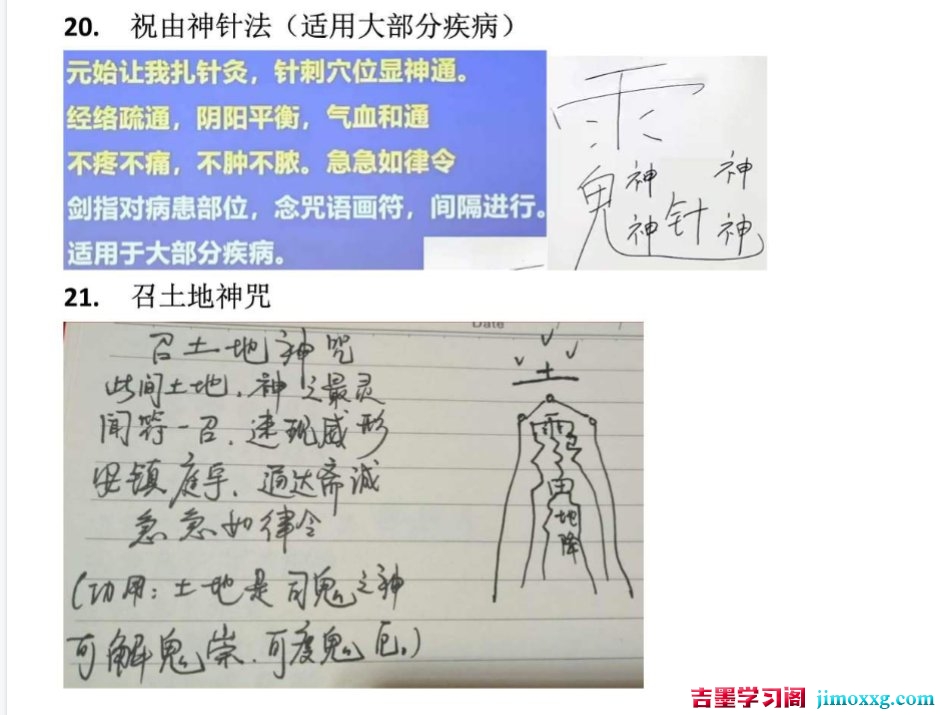 20. 祝由神针法（适用大部分疾病）
元始让我扎针灸，针刺穴位显神通。
经络疏通，阴阳平衡，气血和通
不疼不痛，不肿不脓。急急如律令
剑指对病患部位，念咒语画符，间隔进行。
适用于大部分疾病。
雨
鬼 神 神
神 针 神
21. 召土地神咒
Date
召土地神咒
此间土地，神之最灵
闻符一召，速现威形
安镇庭宇，通达斋诚
急急如律令
（功用：土地是司鬼之神
可解鬼崇，可度鬼厄。）
土
雨
由
地
降
吉墨学习阁 jimoxxg.com